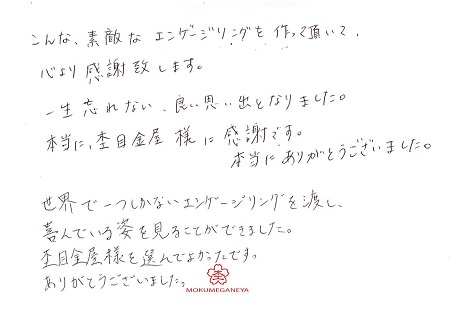 こんな、素敵な エンゲージリングを 作って頂いて、
心より 感謝致します。
一生 忘れない、良い思い出となりました。
本当に、杢目金屋 様 に 感謝です。
本当に ありがとうございました。
世界で一つしかないエンゲージリングを渡し、
喜んでいる姿を見ることができました。
杢目金屋様を選んでよかったです。
ありがとうございました。
MOKUMEGANEYA